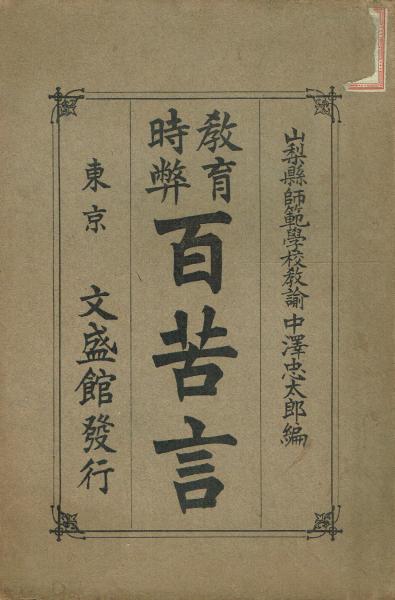 山梨縣師範學校教諭中澤忠太郎編
教育
時弊
百苦言
東京 文盛館發行